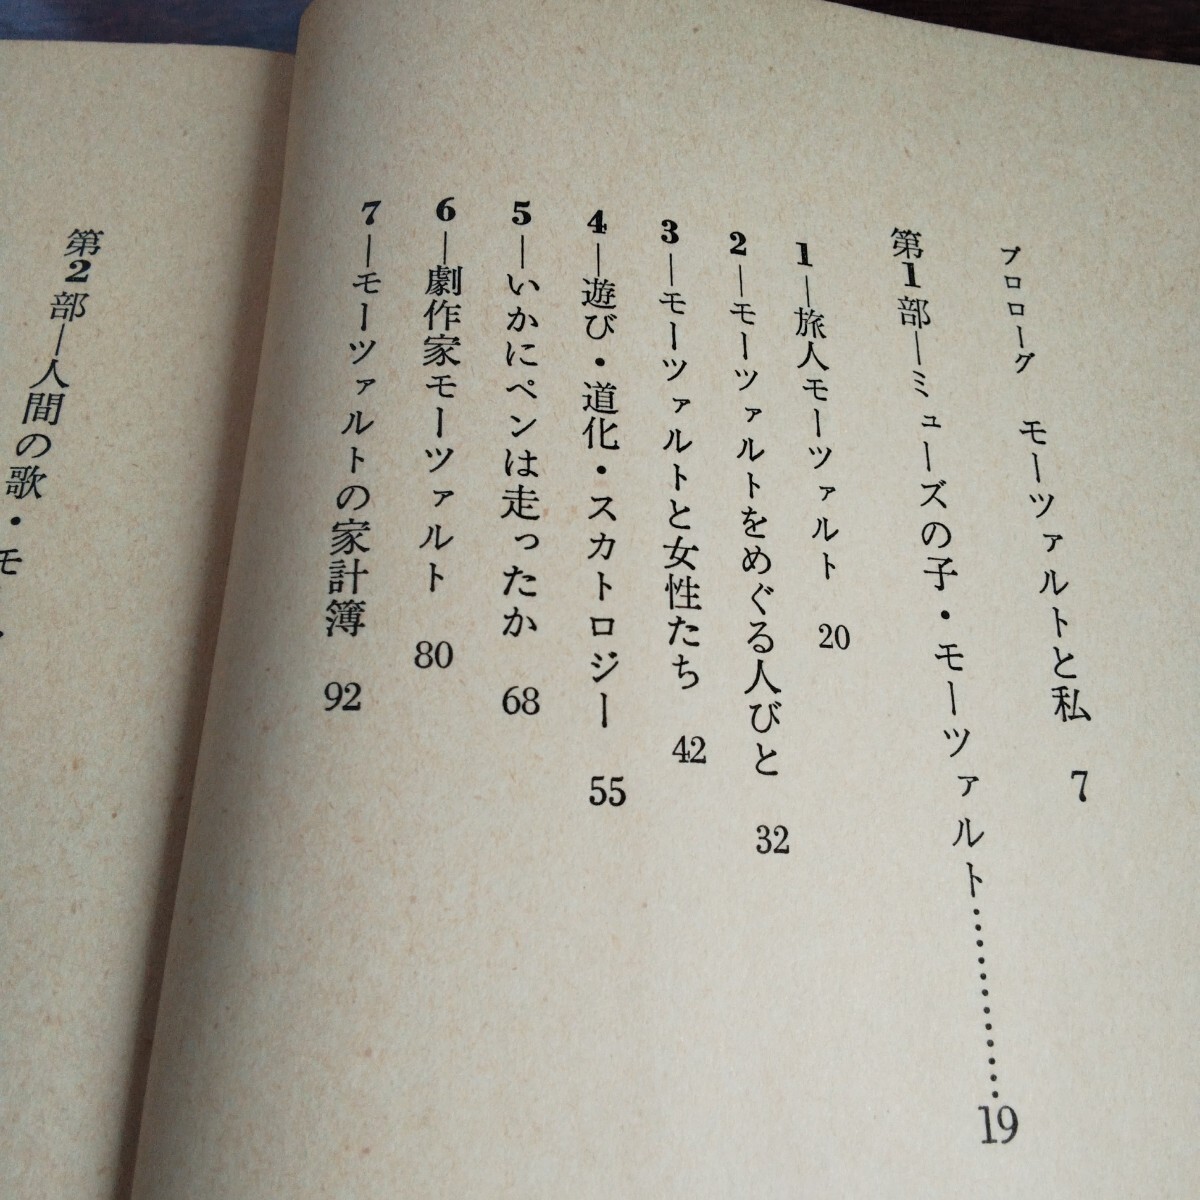 プロローグ モーツァルトと私 7
第1部―ミューズの子・モーツァルト…………19
1―旅人モーツァルト 20
2―モーツァルトをめぐる人びと 32
3―モーツァルトと女性たち 42
4―遊び・道化・スカトロジー 55
5―いかにペンは走ったか 68
6―劇作家モーツァルト 80
7―モーツァルトの家計簿 92
第2部―人間の歌・モー